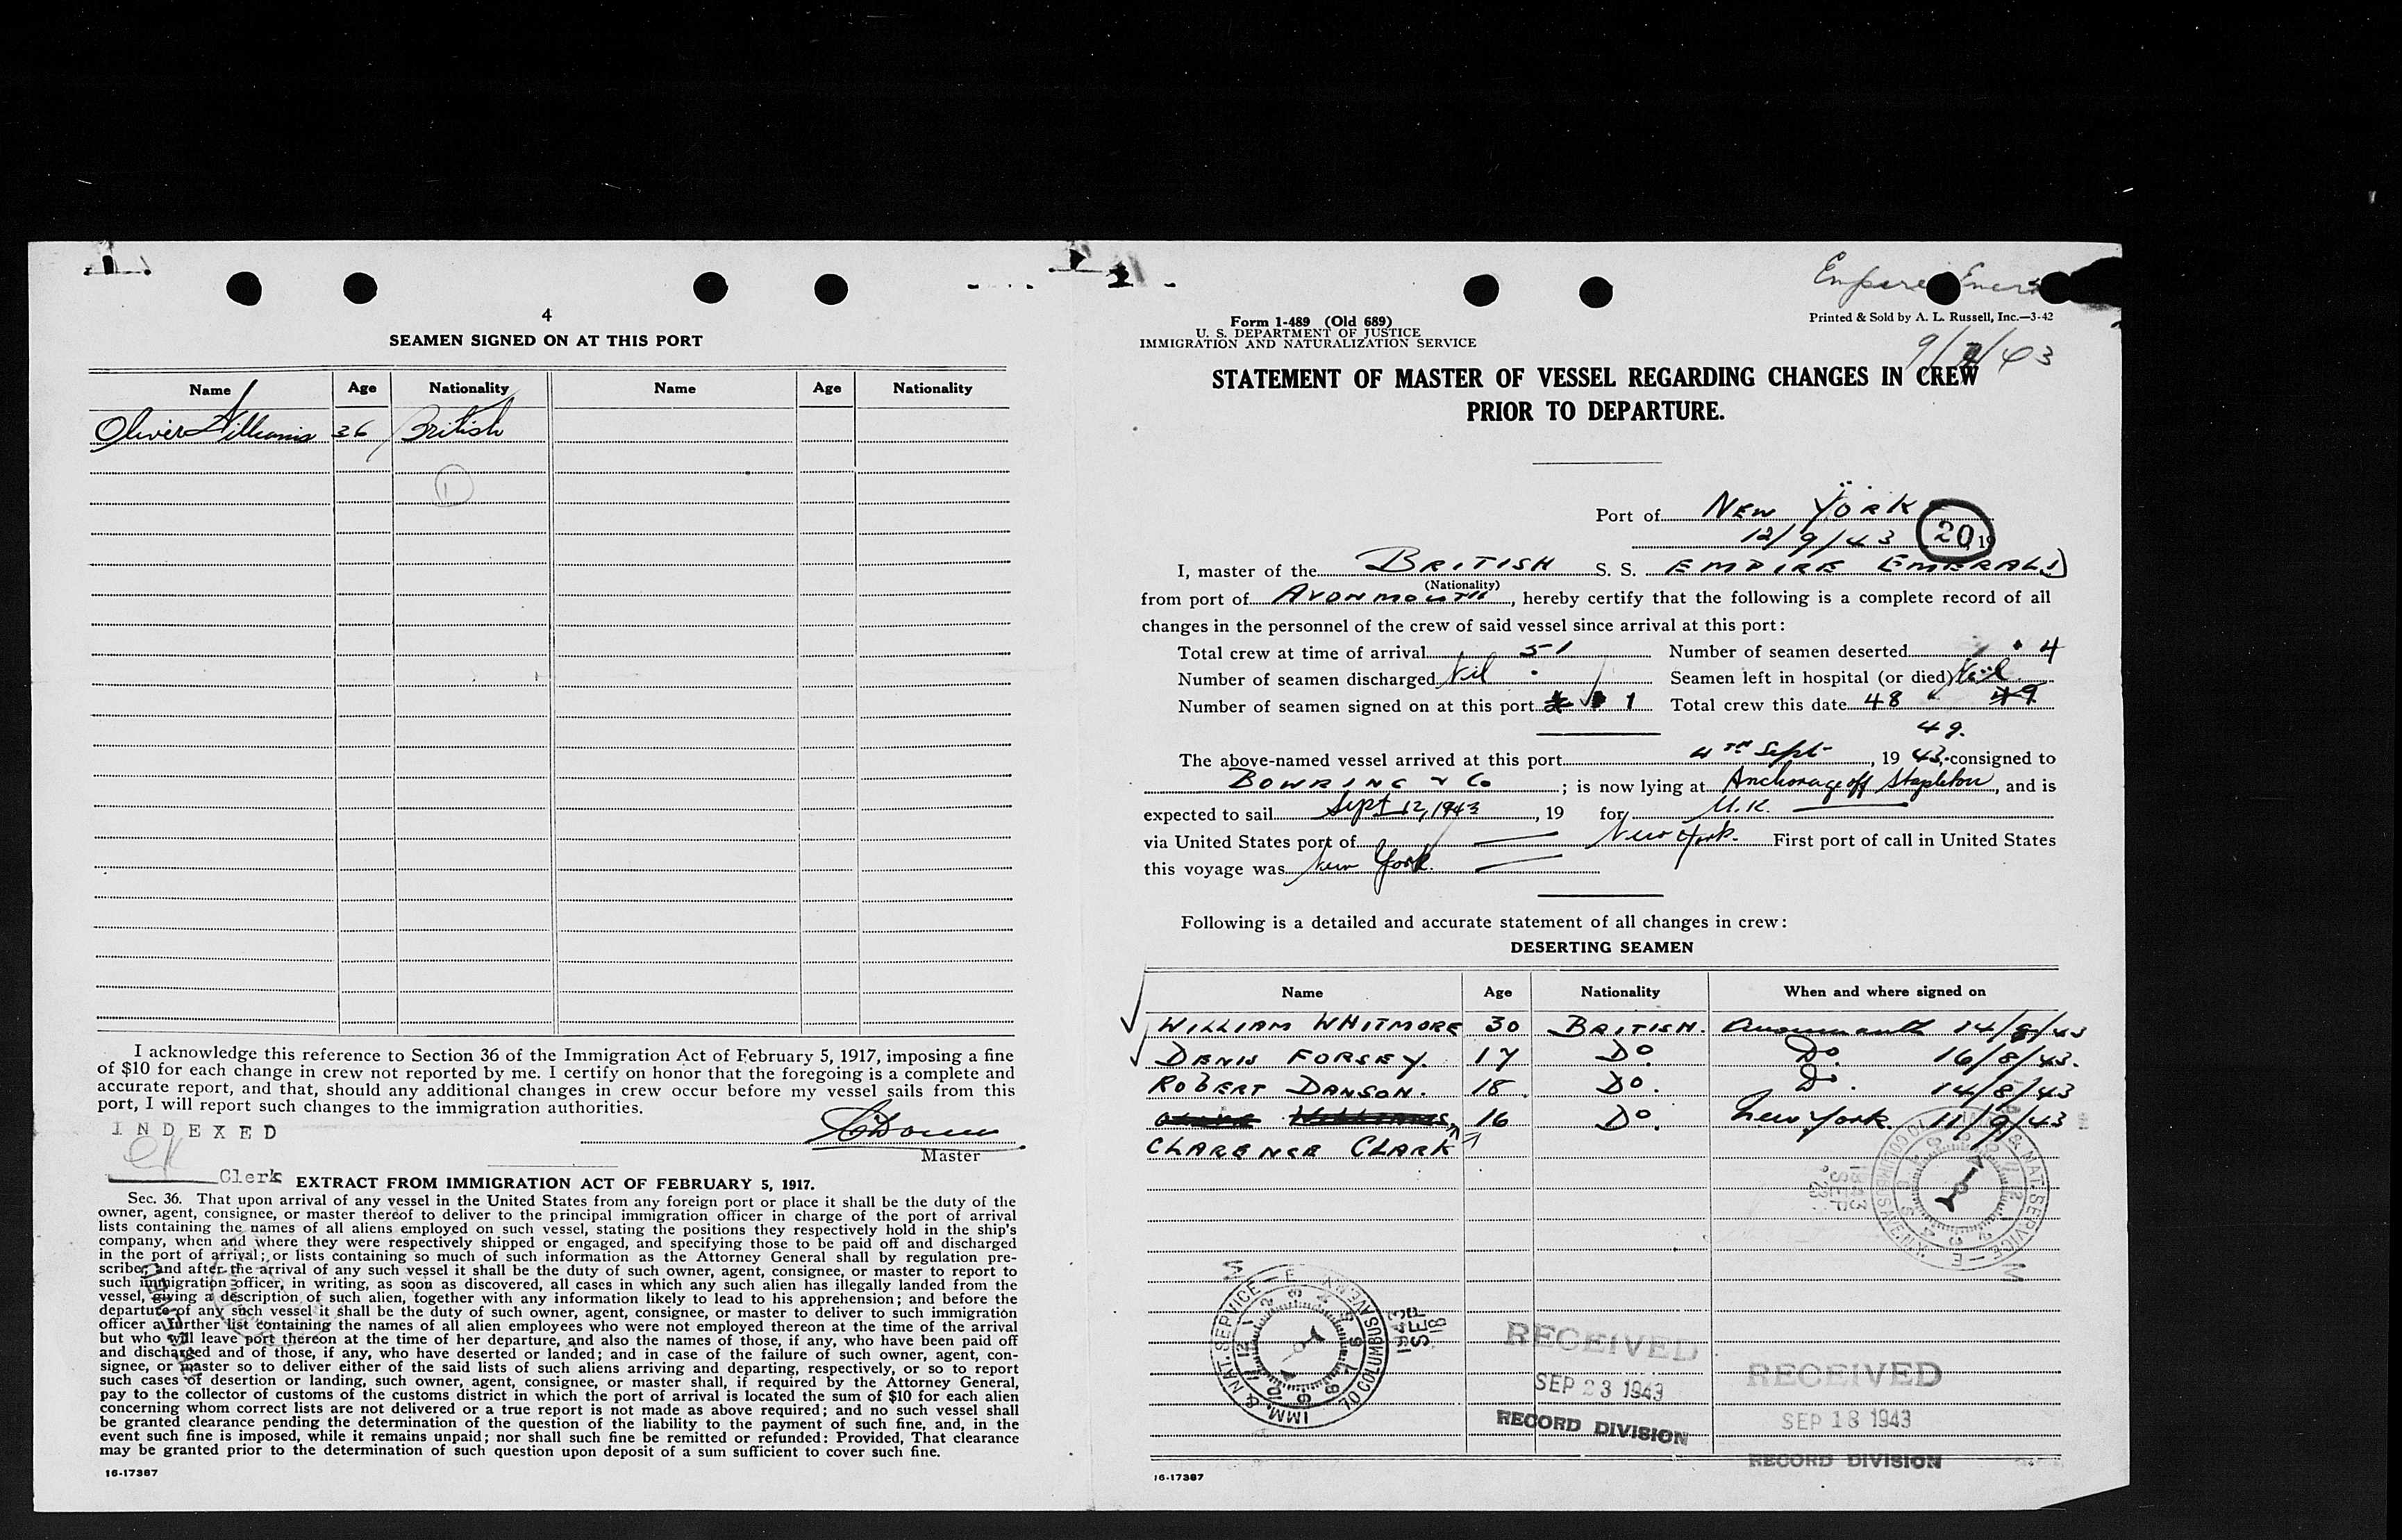 4
SEAMEN SIGNED ON AT THIS PORT
Name Age Nationality Name Age Nationality
Oliver Williams 36 British
1
I acknowledge this reference to Section 36 of the Immigration Act of February 5, 1917, imposing a fine
of $10 for each change in crew not reported by me. I certify on honor that the foregoing is a complete and
accurate report, and that, should any additional changes in crew occur before my vessel sails from this
port, I will report such changes to the immigration authorities.
INDEXED
Master
Clerk
EXTRACT FROM IMMIGRATION ACT OF FEBRUARY 5, 1917.
Sec. 36. That upon arrival of any vessel in the United States from any foreign port or place it shall be the duty of the
owner, agent, consignee, or master thereof to deliver to the principal immigration officer in charge of the port of arrival
lists containing the names of all aliens employed on such vessel, stating the positions they respectively hold in the ship's
company, when and where they were respectively shipped or engaged, and specifying those to be paid off and discharged
in the port of arrival; or lists containing so much of such information as the Attorney General shall by regulation pre-
scribe; and after the arrival of any such vessel it shall be the duty of such owner, agent, consignee, or master to report to
such immigration officer, in writing, as soon as discovered, all cases in which any such alien has illegally landed from the
vessel, giving a description of such alien, together with any information likely to lead to his apprehension; and before the
departure of any such vessel it shall be the duty of such owner, agent, consignee, or master to deliver to such immigration
officer a further list containing the names of all alien employees who were not employed thereon at the time of the arrival
but who will leave port thereon at the time of her departure, and also the names of those, if any, who have been paid off
and discharged and of those, if any, who have deserted or landed; and in case of the failure of such owner, agent, con-
signee, or master so to deliver either of the said lists of such aliens arriving and departing, respectively, or so to report
such cases of desertion or landing, such owner, agent, consignee, or master shall, if required by the Attorney General,
pay to the collector of customs of the customs district in which the port of arrival is located the sum of $10 for each alien
concerning whom correct lists are not delivered or a true report is not made as above required; and no such vessel shall
be granted clearance pending the determination of the question of the liability to the payment of such fine, and, in the
event such fine is imposed, while it remains unpaid; nor shall such fine be remitted or refunded: Provided, That clearance
may be granted prior to the determination of such question upon deposit of a sum sufficient to cover such fine.
16-17387
Empire
Form 1-489 (Old 689)
U. S. DEPARTMENT OF JUSTICE
IMMIGRATION AND NATURALIZATION SERVICE
Printed & Sold by A. L. Russell, Inc.—3-42
STATEMENT OF MASTER OF VESSEL REGARDING CHANGES IN CREW
PRIOR TO DEPARTURE.
Port of NEW YORK
12/9/43 20 19
I, master of the BRITISH S. S. EMPIRE EMERALD
(Nationality)
from port of AVONMOUTH, hereby certify that the following is a complete record of all
changes in the personnel of the crew of said vessel since arrival at this port:
Total crew at time of arrival 51 Number of seamen deserted 4
Number of seamen discharged Nil Seamen left in hospital (or died) Nil
Number of seamen signed on at this port 1 Total crew this date 48 49
49.
The above-named vessel arrived at this port 4TH Sept, 19 43, consigned to
BOWRING & Co; is now lying at Anchorage off Stapleton, and is
expected to sail Sept 12, 1943, 19 for U.K.
via United States port of New York. First port of call in United States
this voyage was New York.
Following is a detailed and accurate statement of all changes in crew:
DESERTING SEAMEN
Name Age Nationality When and where signed on
WILLIAM WHITMORE 30 BRITISH. Avonmouth 14/8/43
DENIS FORSEY. 17 Do. Do. 16/8/43.
ROBERT DANSON. 18. Do. Do. 14/8/43
16 Do. New York. 11/9/43
CLARENCE CLARK
IMM. & NAT. SERVICE — E 70 COLUMBUS AVE. N.Y.
1943 SEP 18
IMM. & NAT. SERVICE — E 70 COLUMBUS AVE. N.Y.
1943 SEP 23
RECEIVED
SEP 23 1943
RECORD DIVISION
RECEIVED
SEP 18 1943
RECORD DIVISION
16-17387